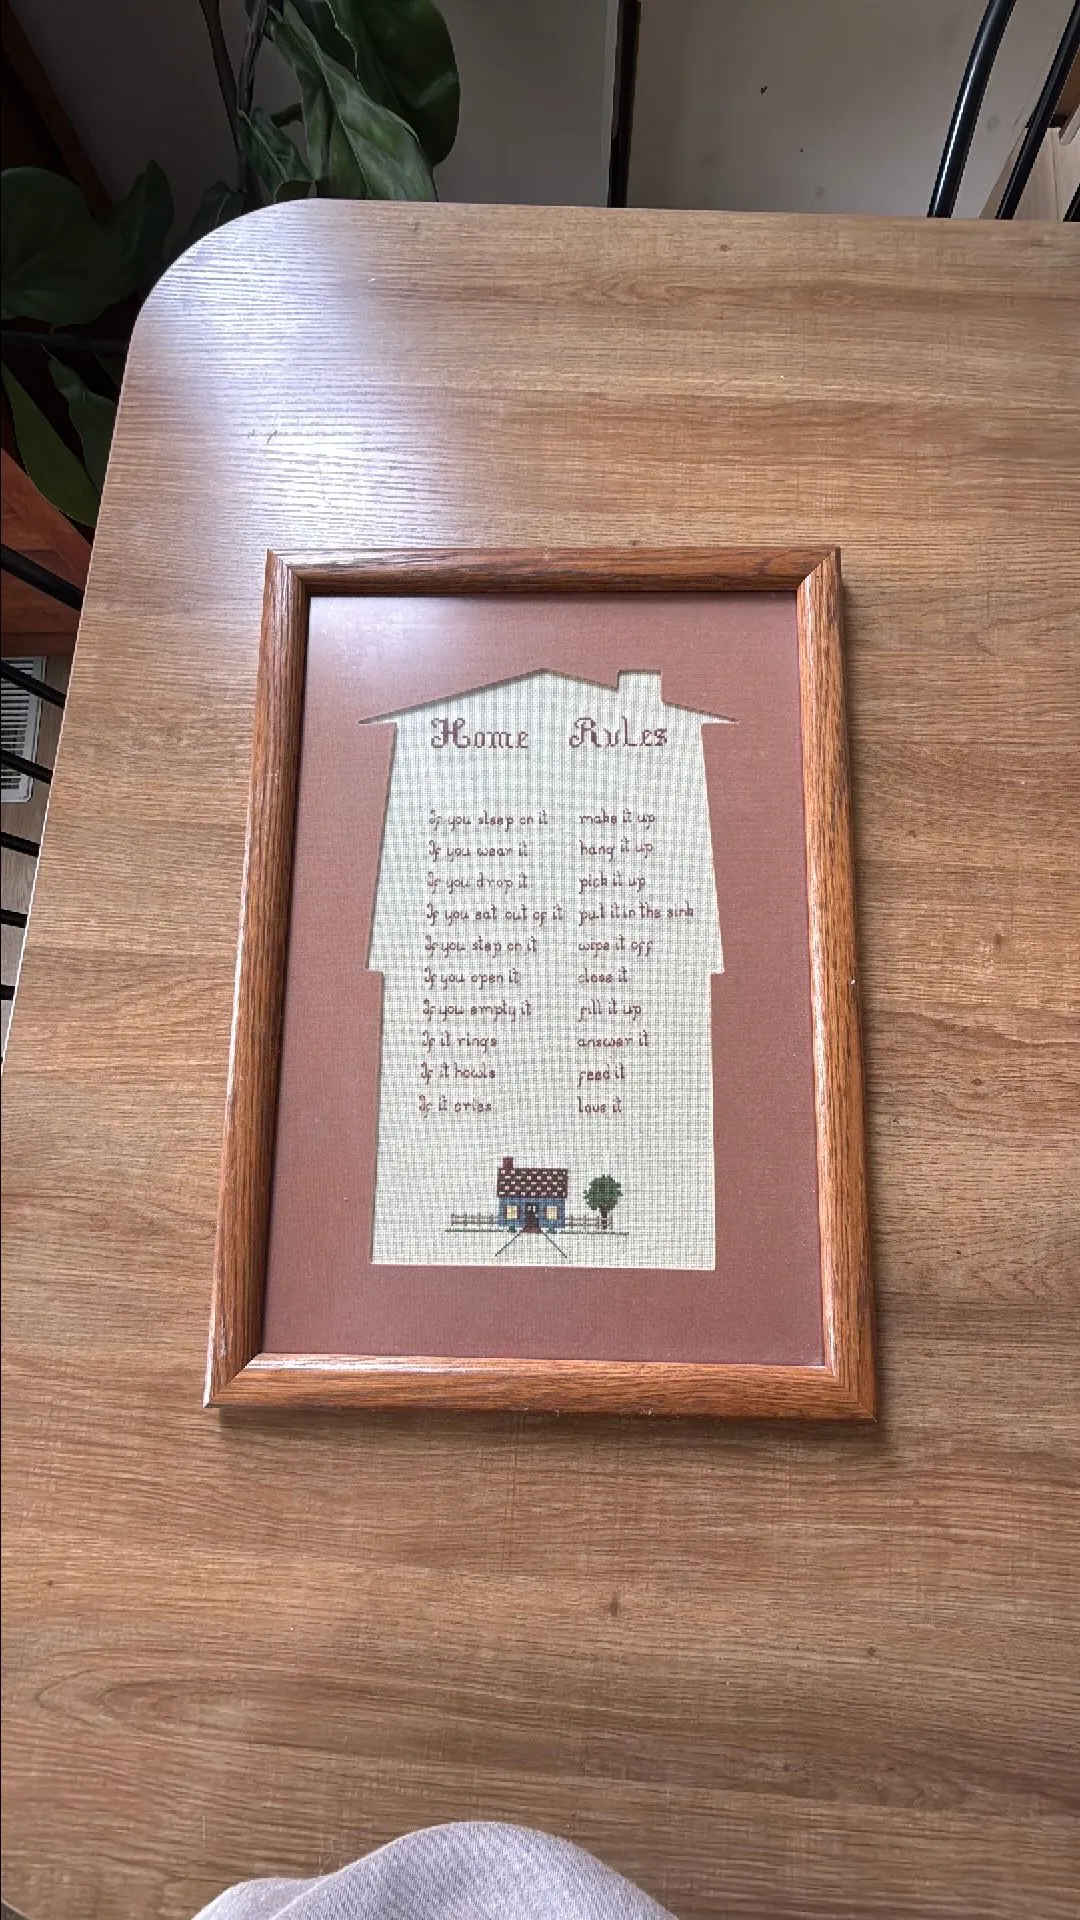 Home Rules
If you sleep on it make it up
If you wear it hang it up
If you drop it pick it up
If you eat out of it put it in the sink
If you step on it wipe it off
If you open it close it
If you empty it fill it up
If it rings answer it
If it howls feed it
If it cries love it